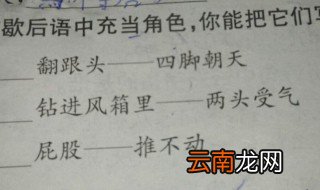 歇后语中充当角色,你能把它们写
翻跟头——四脚朝天
钻进风箱里——两头受气
屁股——推不动
云南龙网